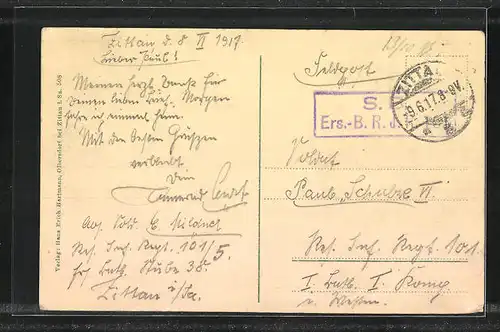 Zittau d. 8 VI 1917.
Lieber Paul!
Meinen herzl. Dank für
Deinen lieben Brief. Morgen
fahre ich einmal heim.
Mit den besten Grüßen
verbleibt
Dein
Abs. Sold. E. Mildner
Res. Inf. Regt. 101/5.
Stube 38.
Zittau i/Sa.
Verlag: Hans Erich Hartmann, Olbersdorf bei Zittau i. Sa.
Feldpost
S.
Ers.-B. R. J.
ZITTAU
-9.6.17. 8-9V.
Soldat
Paul Schulze VI
Res. Inf. Regt. 101.
I. Batl. I. Komp.